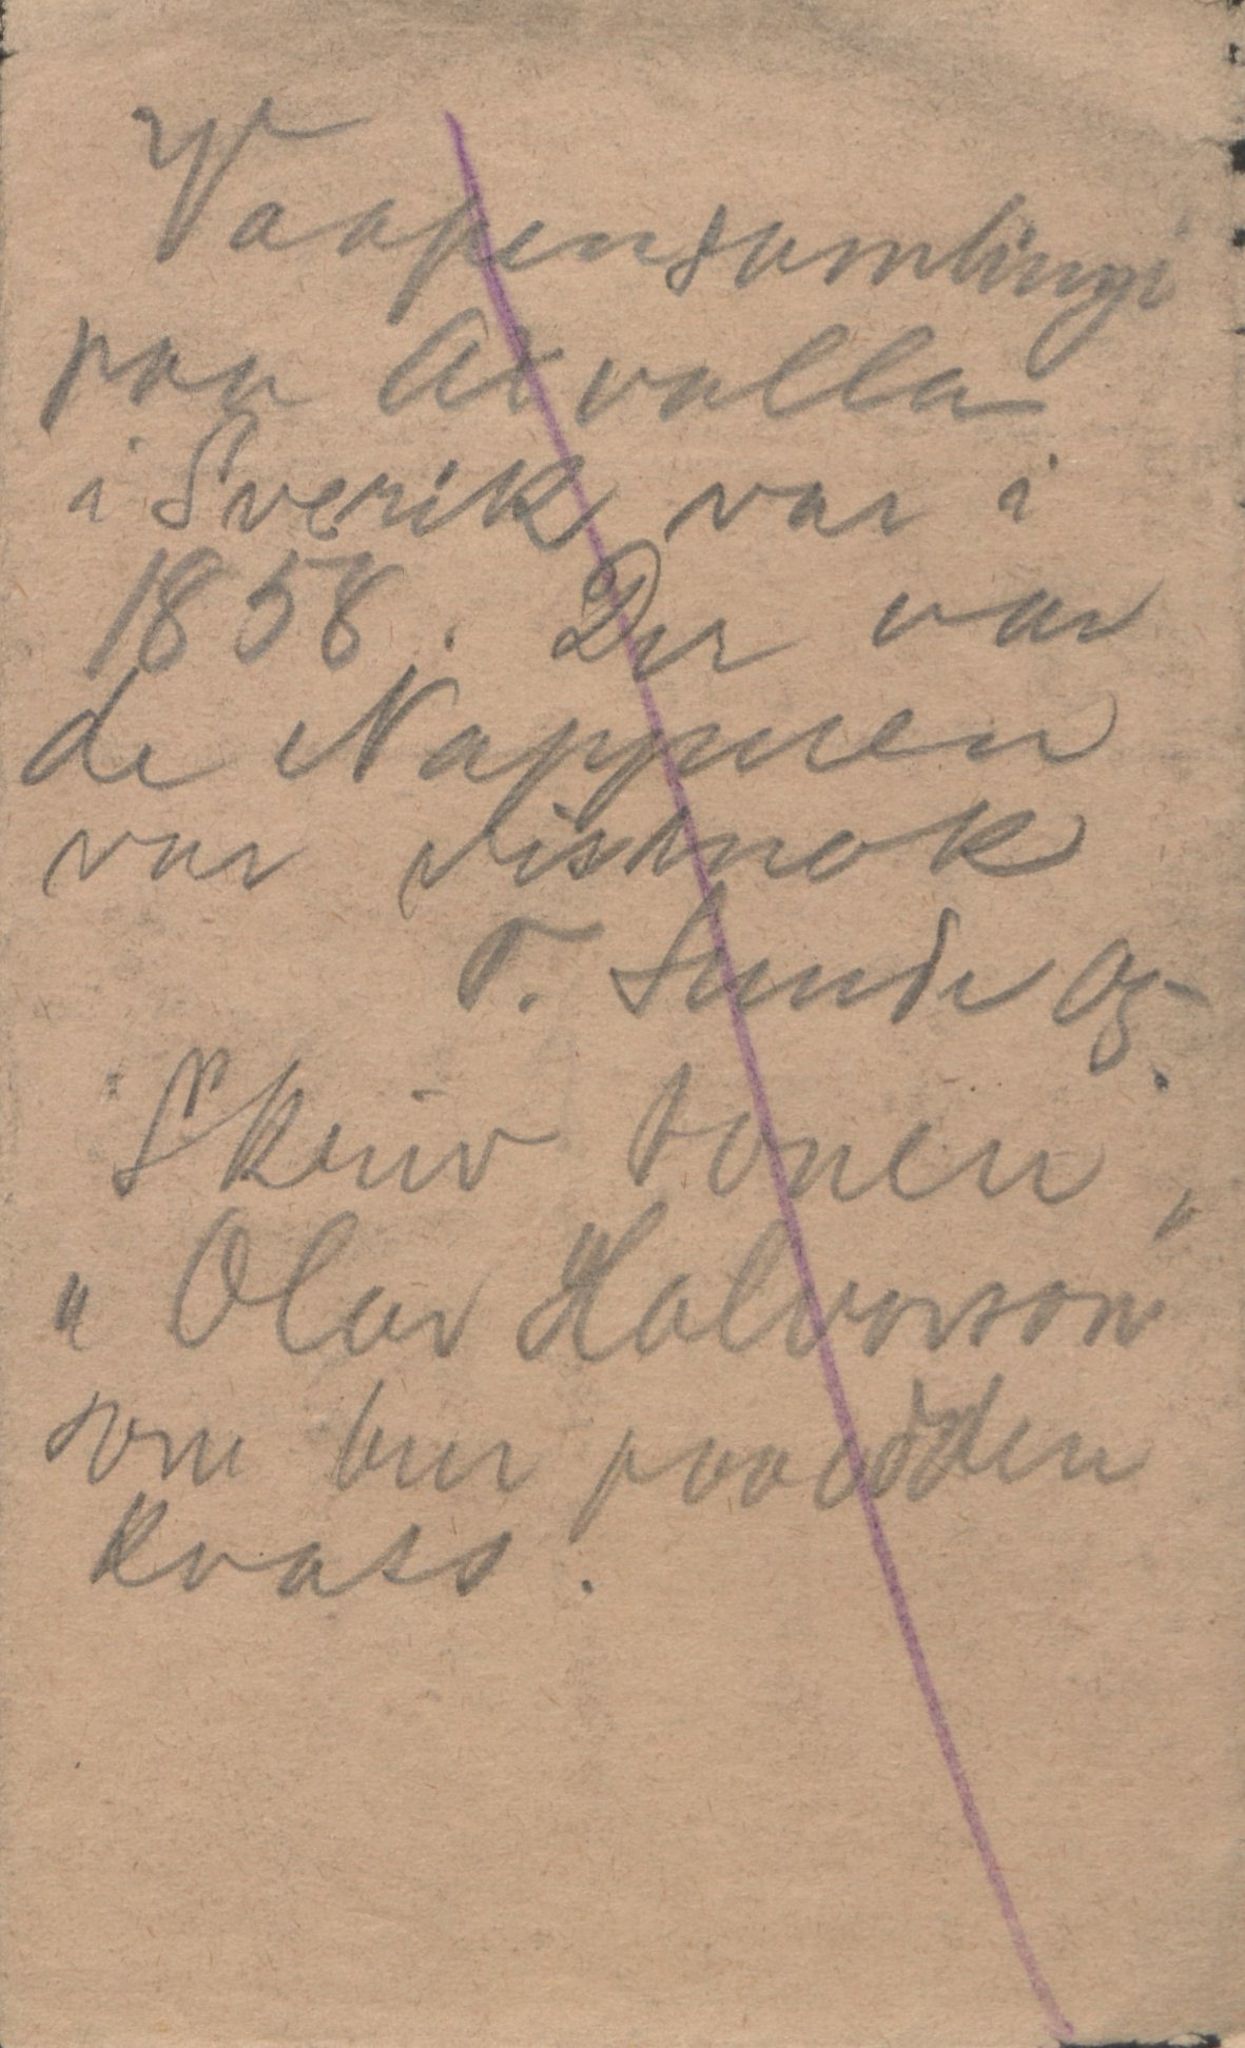 Vaapensamlingi
paa Axvalla
i Sverik var i
1858. Der var
de Nappuen
var vistnok
T. Sunde og.
Skriv tonen,
"Olav Halvorson"
som bur paa odden
Kvass.